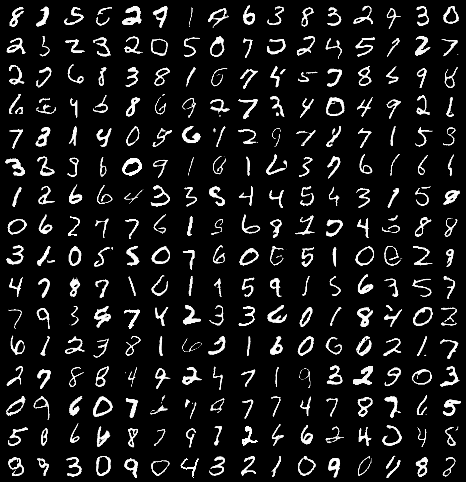 8 1 5 0 2 9 1 9 6 3 8 3 2 9 3 0
2 3 2 3 2 0 5 0 7 0 2 4 5 9 2 7
2 7 6 8 3 8 1 0 7 4 5 7 8 5 9 8
6 5 4 6 8 6 9 2 7 3 4 0 4 9 2 1
7 8 1 4 0 5 6 1 2 9 7 8 7 1 5 3
3 3 9 6 0 9 1 6 1 2 3 7 6 1 6 1
1 2 6 6 4 3 3 5 4 4 5 4 3 1 5 8
0 6 2 7 7 6 1 9 6 8 1 0 4 5 8 8
3 1 0 5 5 0 7 6 0 0 5 1 0 0 2 9
4 7 8 7 1 0 1 1 5 9 1 5 6 3 5 7
7 9 3 4 7 4 2 3 3 6 0 1 8 4 0 2
6 1 2 3 8 1 6 2 1 6 0 6 0 2 1 7
2 7 8 8 4 9 2 4 7 1 9 3 2 9 0 3
0 9 6 0 7 2 9 9 7 7 4 7 8 7 6 5
5 8 6 6 8 7 9 7 2 4 6 2 4 0 4 8
9 9 3 0 9 0 4 3 2 1 0 9 0 1 8 8